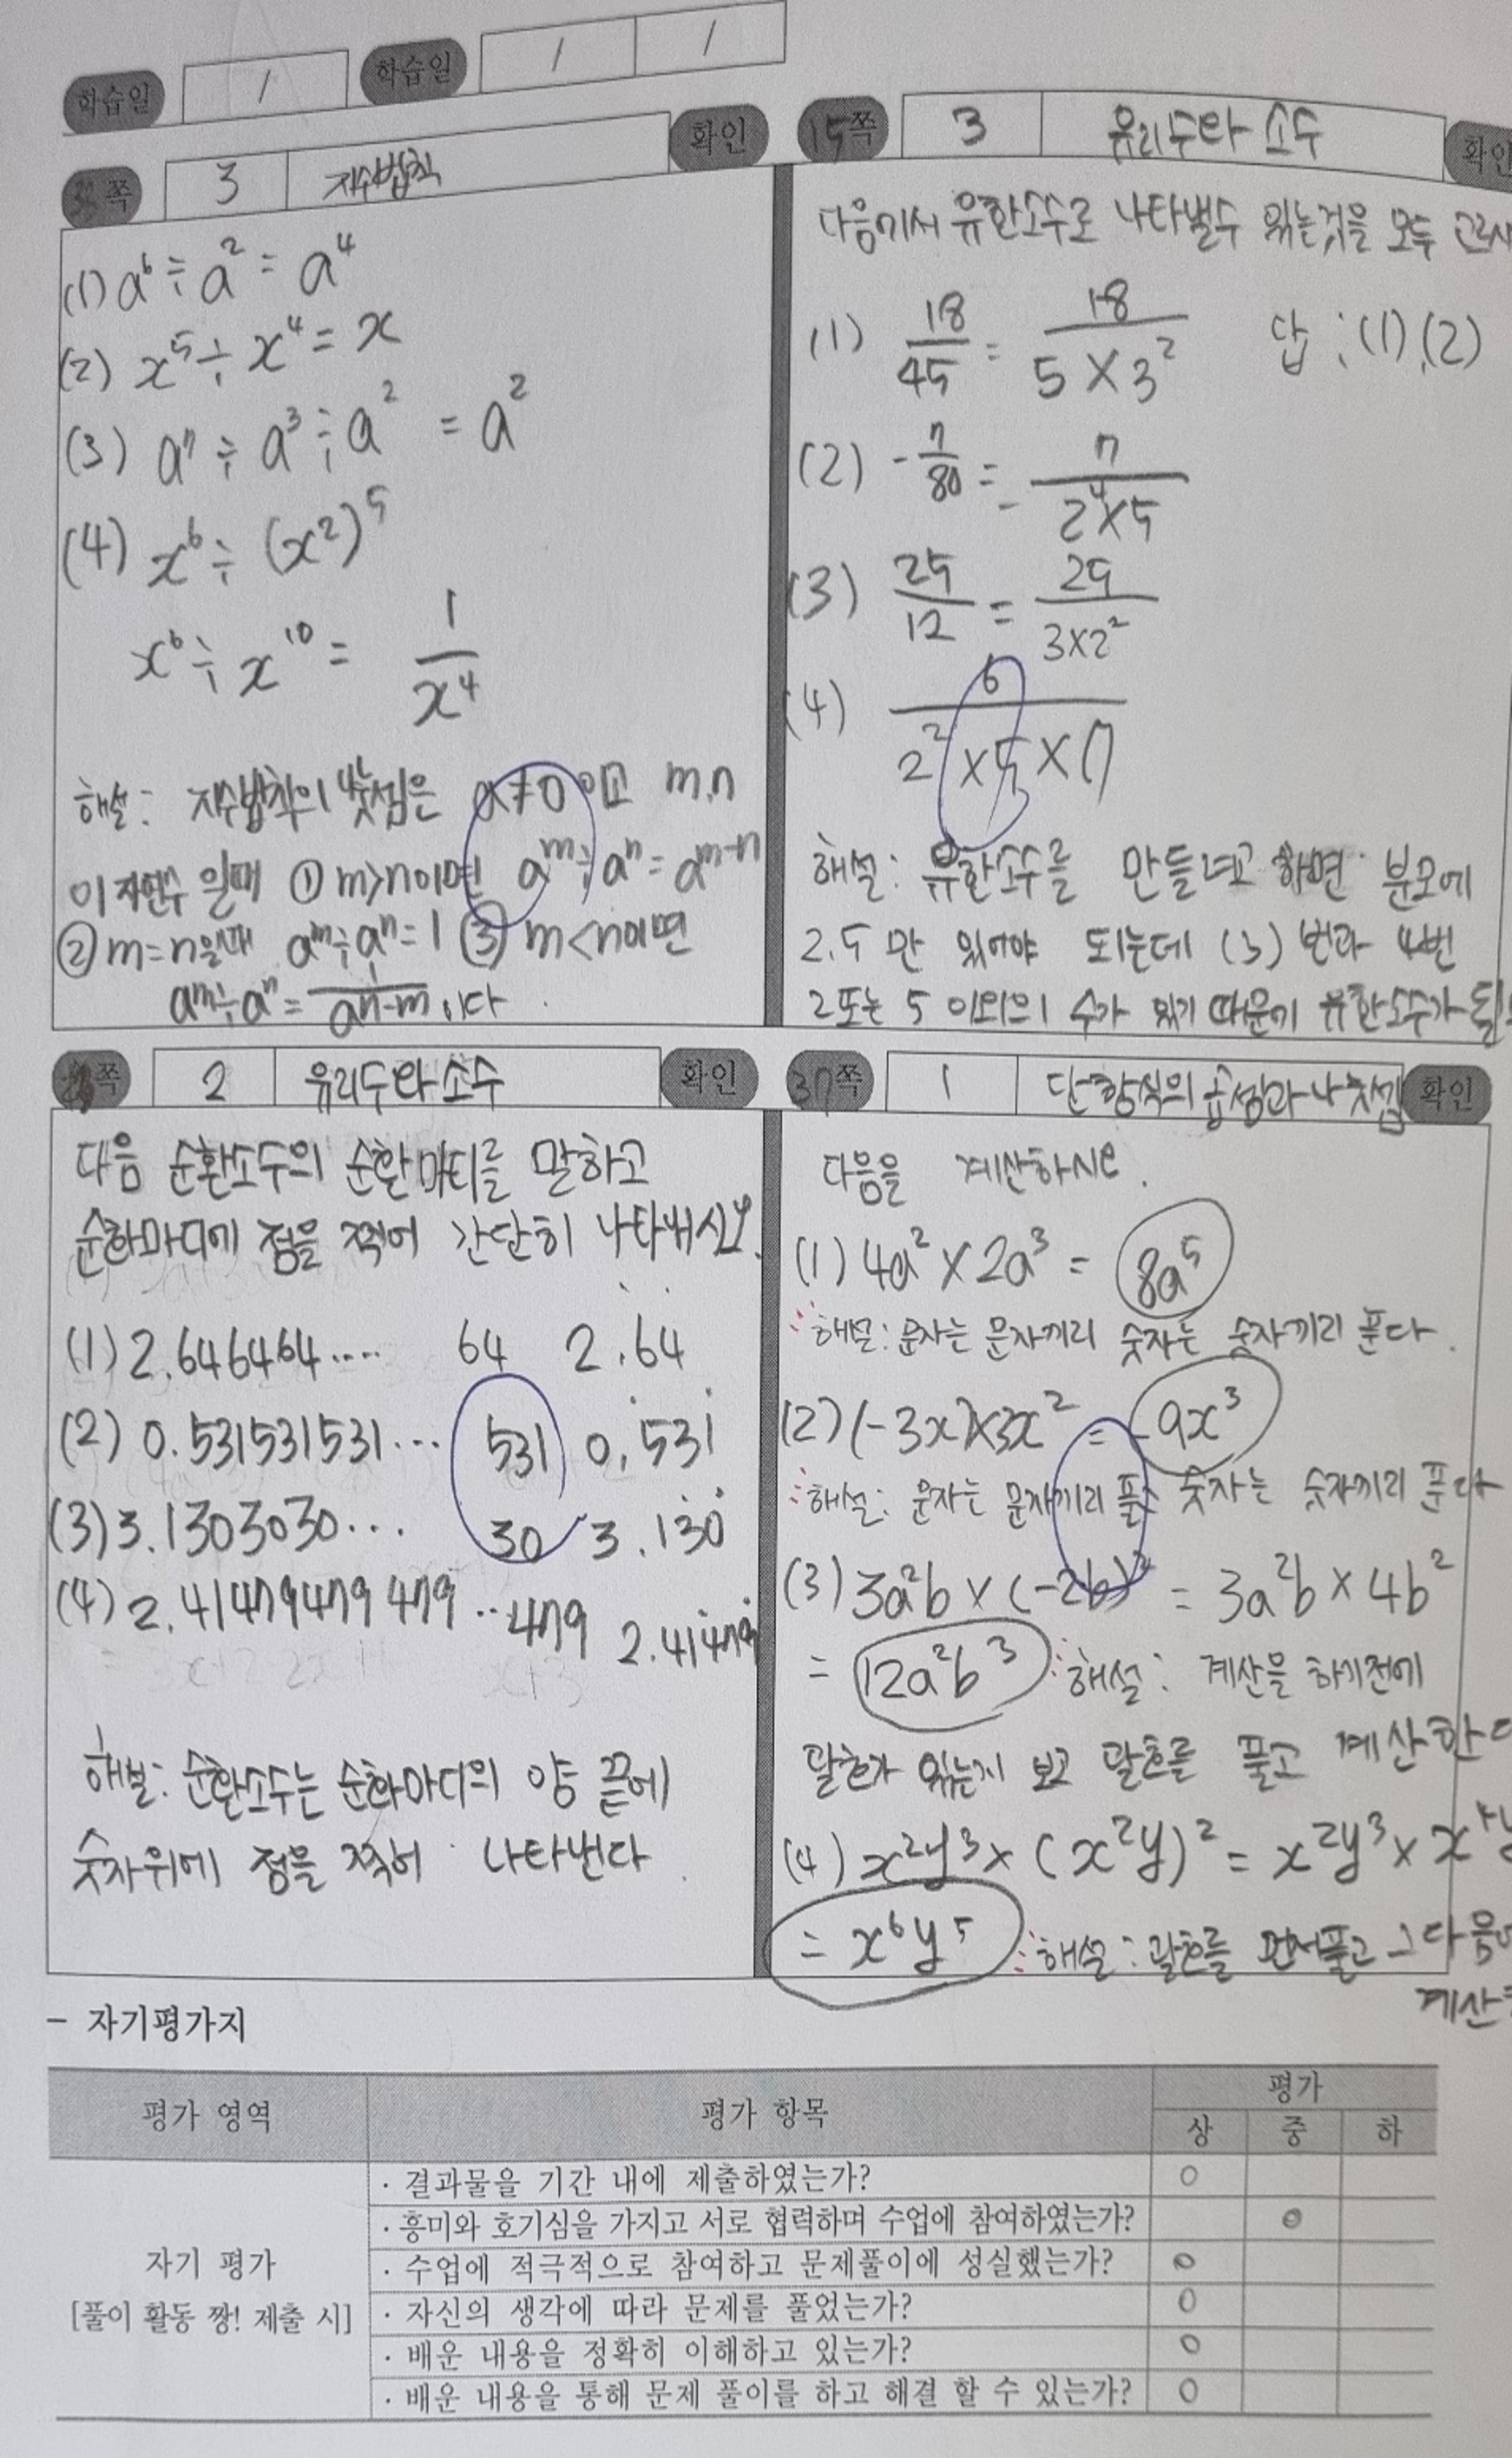 학습일 / 학습일 / /
쪽 3 지수법칙 확인
(1) a⁶ ÷ a² = a⁴
(2) x⁵ ÷ x⁴ = x
(3) a⁷ ÷ a³ ÷ a² = a²
(4) x⁶ ÷ (x²)⁵
x⁶ ÷ x¹⁰ = 1/x⁴
해설: 지수법칙의 나눗셈은 a≠0이고 m,n
이 자연수 일때 ① m>n이면 aᵐ÷aⁿ=aᵐ⁻ⁿ
② m=n일때 aᵐ÷aⁿ=1 ③ m<n이면
aᵐ÷aⁿ=1/aⁿ⁻ᵐ 이다.
15쪽 3 유리수와 소수 확인
다음에서 유한소수로 나타낼수 있는것을 모두
(1) 18/45 = 18/(5×3²) 답:(1),(2)
(2) -7/80 = -7/(2⁴×5)
(3) 25/12 = 25/(3×2²)
(4) 6/(2²×5×7)
해설: 유한소수를 만들려고 하면 분모에
2,5만 있어야 되는데 (3)번과 4번
2또는 5 이외의 수가 있기 때문에 유한소수가
쪽 2 유리수와 소수 확인
다음 순환소수의 순환마디를 말하고
순환마디에 점을 찍어 간단히 나타내시오.
(1) 2.646464.... 64 2.6̇4̇
(2) 0.531531531... 531 0.5̇31̇
(3) 3.1303030... 30 3.13̇0̇
(4) 2.41479479479... 479 2.414̇79̇
해설: 순환소수는 순환마디의 양 끝에
숫자위에 점을 찍어 나타낸다.
37쪽 1 단항식의 곱셈과 나눗셈 확인
다음을 계산하시오.
(1) 4a²×2a³ = 8a⁵
해설: 문자는 문자끼리 숫자는 숫자끼리 푼다.
(2) (-3x)×3x² = -9x³
해설: 문자는 문자끼리 숫자는 숫자끼리 푼다
(3) 3a²b×(-2b)² = 3a²b×4b²
= 12a²b³ 해설: 계산을 하기전에
괄호가 있는지 보고 괄호를 풀고 계산한다
(4) x²y³×(x²y)² = x²y³×x⁴y
= x⁶y⁵ 해설: 괄호를 먼저풀고 그다음
계산
- 자기평가지
평가 영역 평가 항목 평가
상 중 하
· 결과물을 기간 내에 제출하였는가? ○
· 흥미와 호기심을 가지고 서로 협력하며 수업에 참여하였는가? ○
자기 평가
· 수업에 적극적으로 참여하고 문제풀이에 성실했는가? ○
[풀이 활동 짱! 제출 시]
· 자신의 생각에 따라 문제를 풀었는가? ○
· 배운 내용을 정확히 이해하고 있는가? ○
· 배운 내용을 통해 문제 풀이를 하고 해결 할 수 있는가? ○